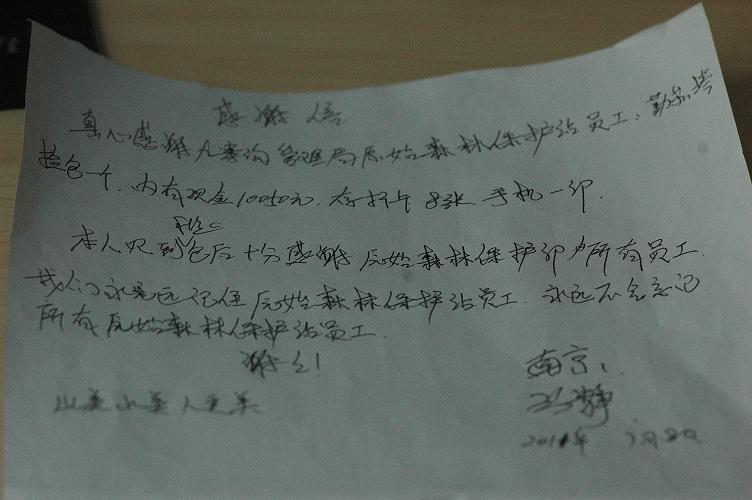 感谢信
真心感谢九寨沟管理局原始森林保护站员工:
捡包一个.内有现金10050元.存折 8张.手机一部.
本人 到包后十分感谢原始森林保护 所有员工.
我们永远记住原始森林保护站员工.永远不会忘记
所有原始森林保护站员工.
谢谢!
山美水美人更美
南京:
静